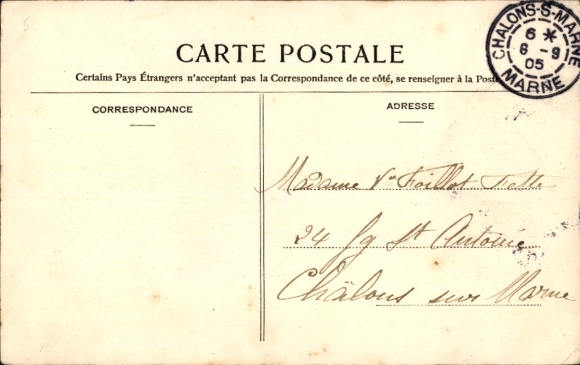 CHALONS-S-MARNE
6 *
6 - 9
05
MARNE
CARTE POSTALE
Certains Pays Étrangers n'acceptant pas la Correspondance de ce côté, se renseigner à la Poste
CORRESPONDANCE
ADRESSE
Madame Foillot
24 fg St Antoine
Châlons sur Marne